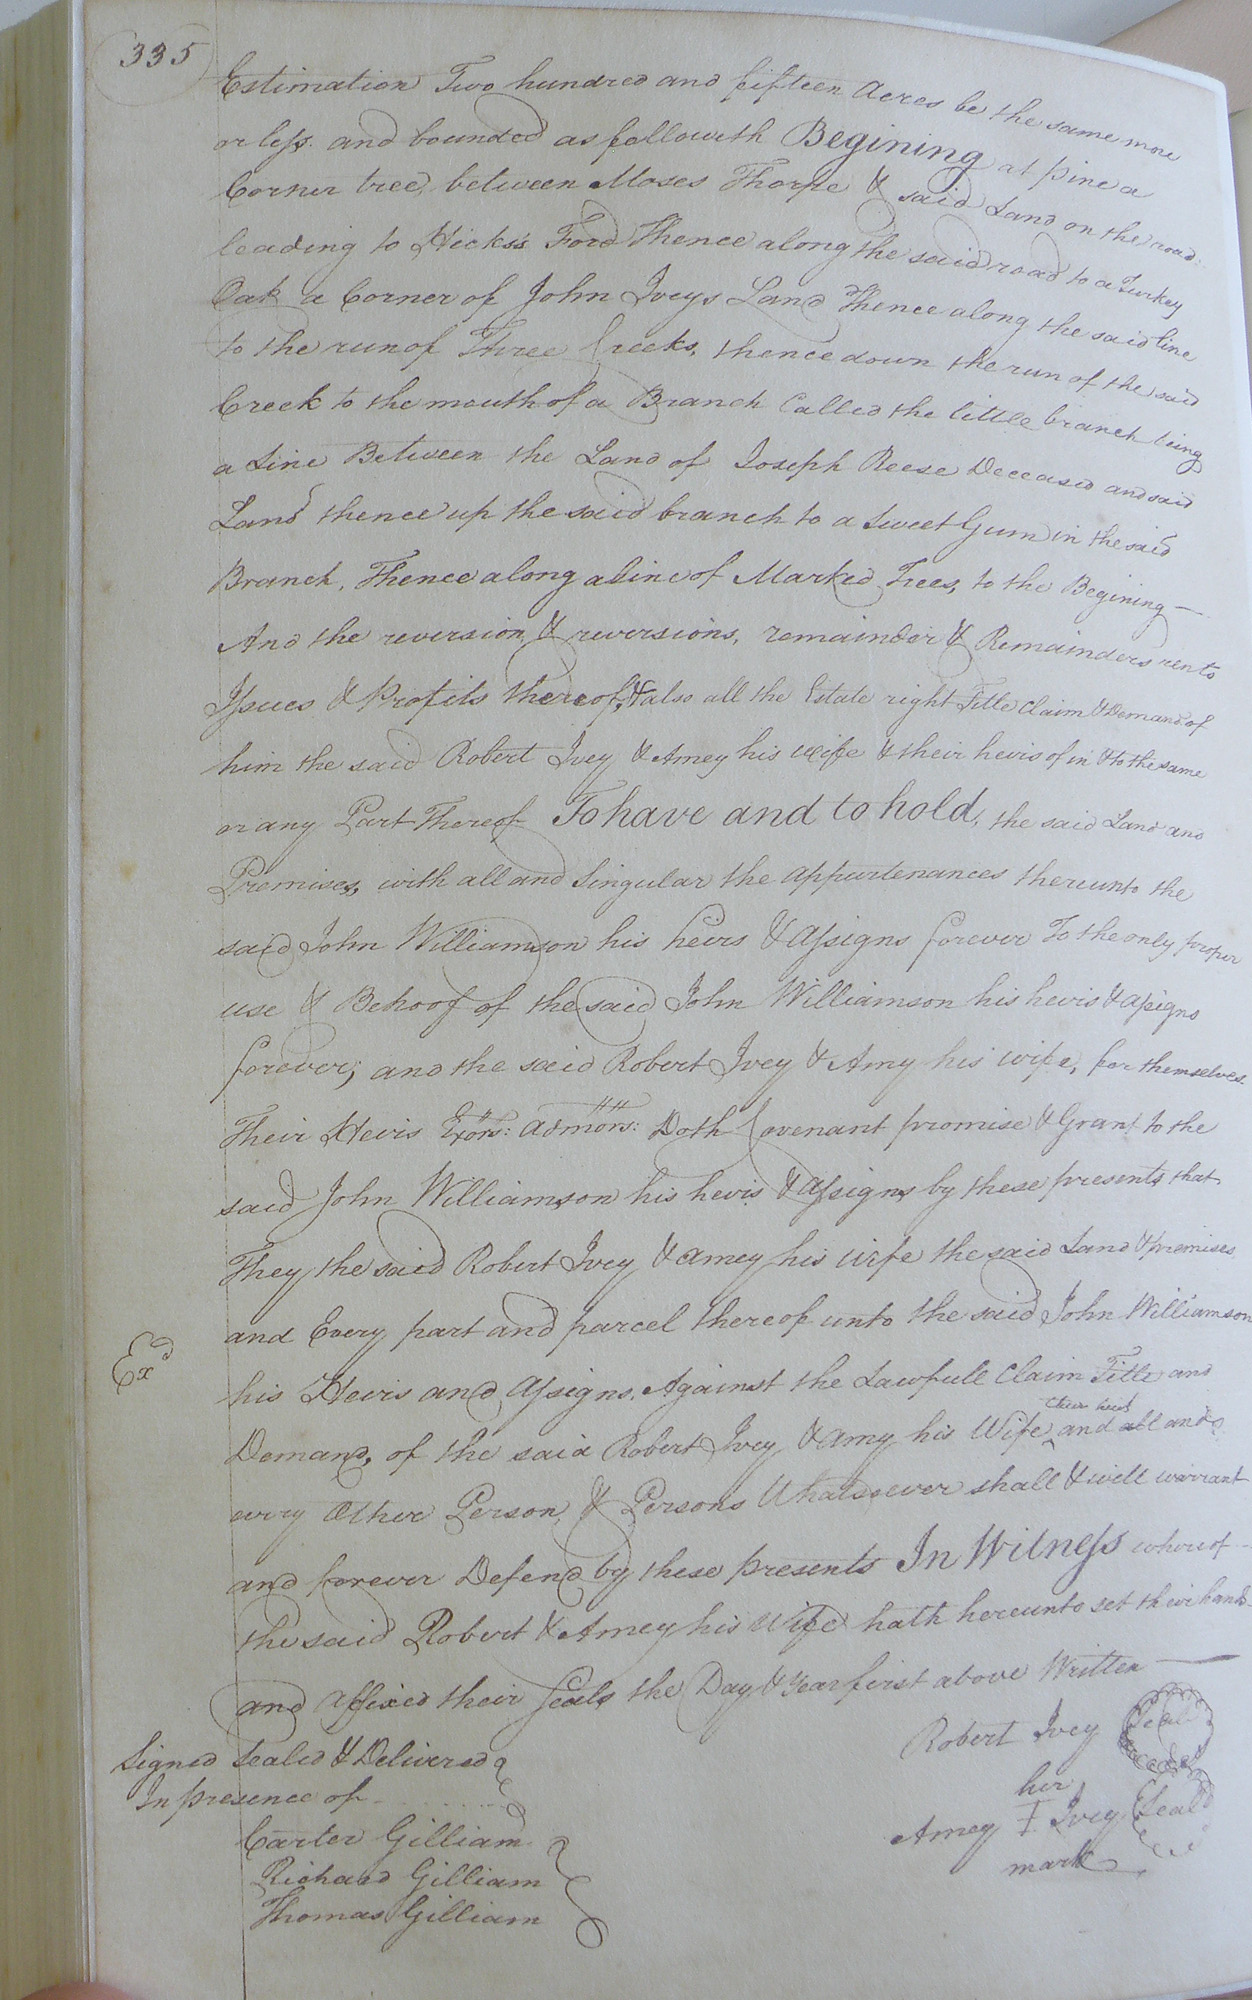 335
Estimation Two hundred and fifteen Acres be the same more
or less and bounded as followeth Begining at pine a
Corner tree, between Moses Thorpe & said Land on the road
leading to Hicks's Ford Thence along the said road to a Turkey
Oak a Corner of John Iveys Land Thence along the said line
to the run of Three Creeks, thence down the run of the said
Creek to the mouth of a Branch Called the little branch being
a Line Between the Land of Joseph Reese Deceased and said
Land thence up the said branch to a Sweet Gum in the said
Branch, Thence along a Line of Marked Trees, to the Begining —
And the reversion & reversions, remainder & Remainders rents
Issues & Profits thereof, & also all the Estate right Title Claim & Demand of
him the said Robert Ivey & Amey his wife & their heirs of in & to the same
or any Part Thereof To have and to hold, the said Land and
Premises, with all and Singular the appurtenances thereunto the
said John Williamson his heirs & Assigns forever To the only proper
use & Behoof of the said John Williamson his heirs & assigns
forever; and the said Robert Ivey & Amy his wife, for themselves
Their Heirs Exors: admors: Doth Covenant promise & Grant to the
said John Williamson his heirs & Assigns by these presents that
They the said Robert Ivey & Amey his wife the said Land & premises
and Every part and parcel thereof unto the said John Williamson
Exd
his Heirs and Assigns, Against the Lawfull Claim Title and
their heirs
Demand, of the said Robert Ivey & Amy his Wife ^ and all and
every Other Person & Persons Whatsoever shall & will warrant
and forever Defend by these presents In Witness whereof
the said Robert & Amey his Wife hath hereunto set their hands
and affixed their Seals the Day & Year first above Written —
Signed Sealed & Delivered
In presence of
Carter Gilliam
Richard Gilliam
Thomas Gilliam
Robert Ivey Seal
her
Amey I Ivey Seal
mark